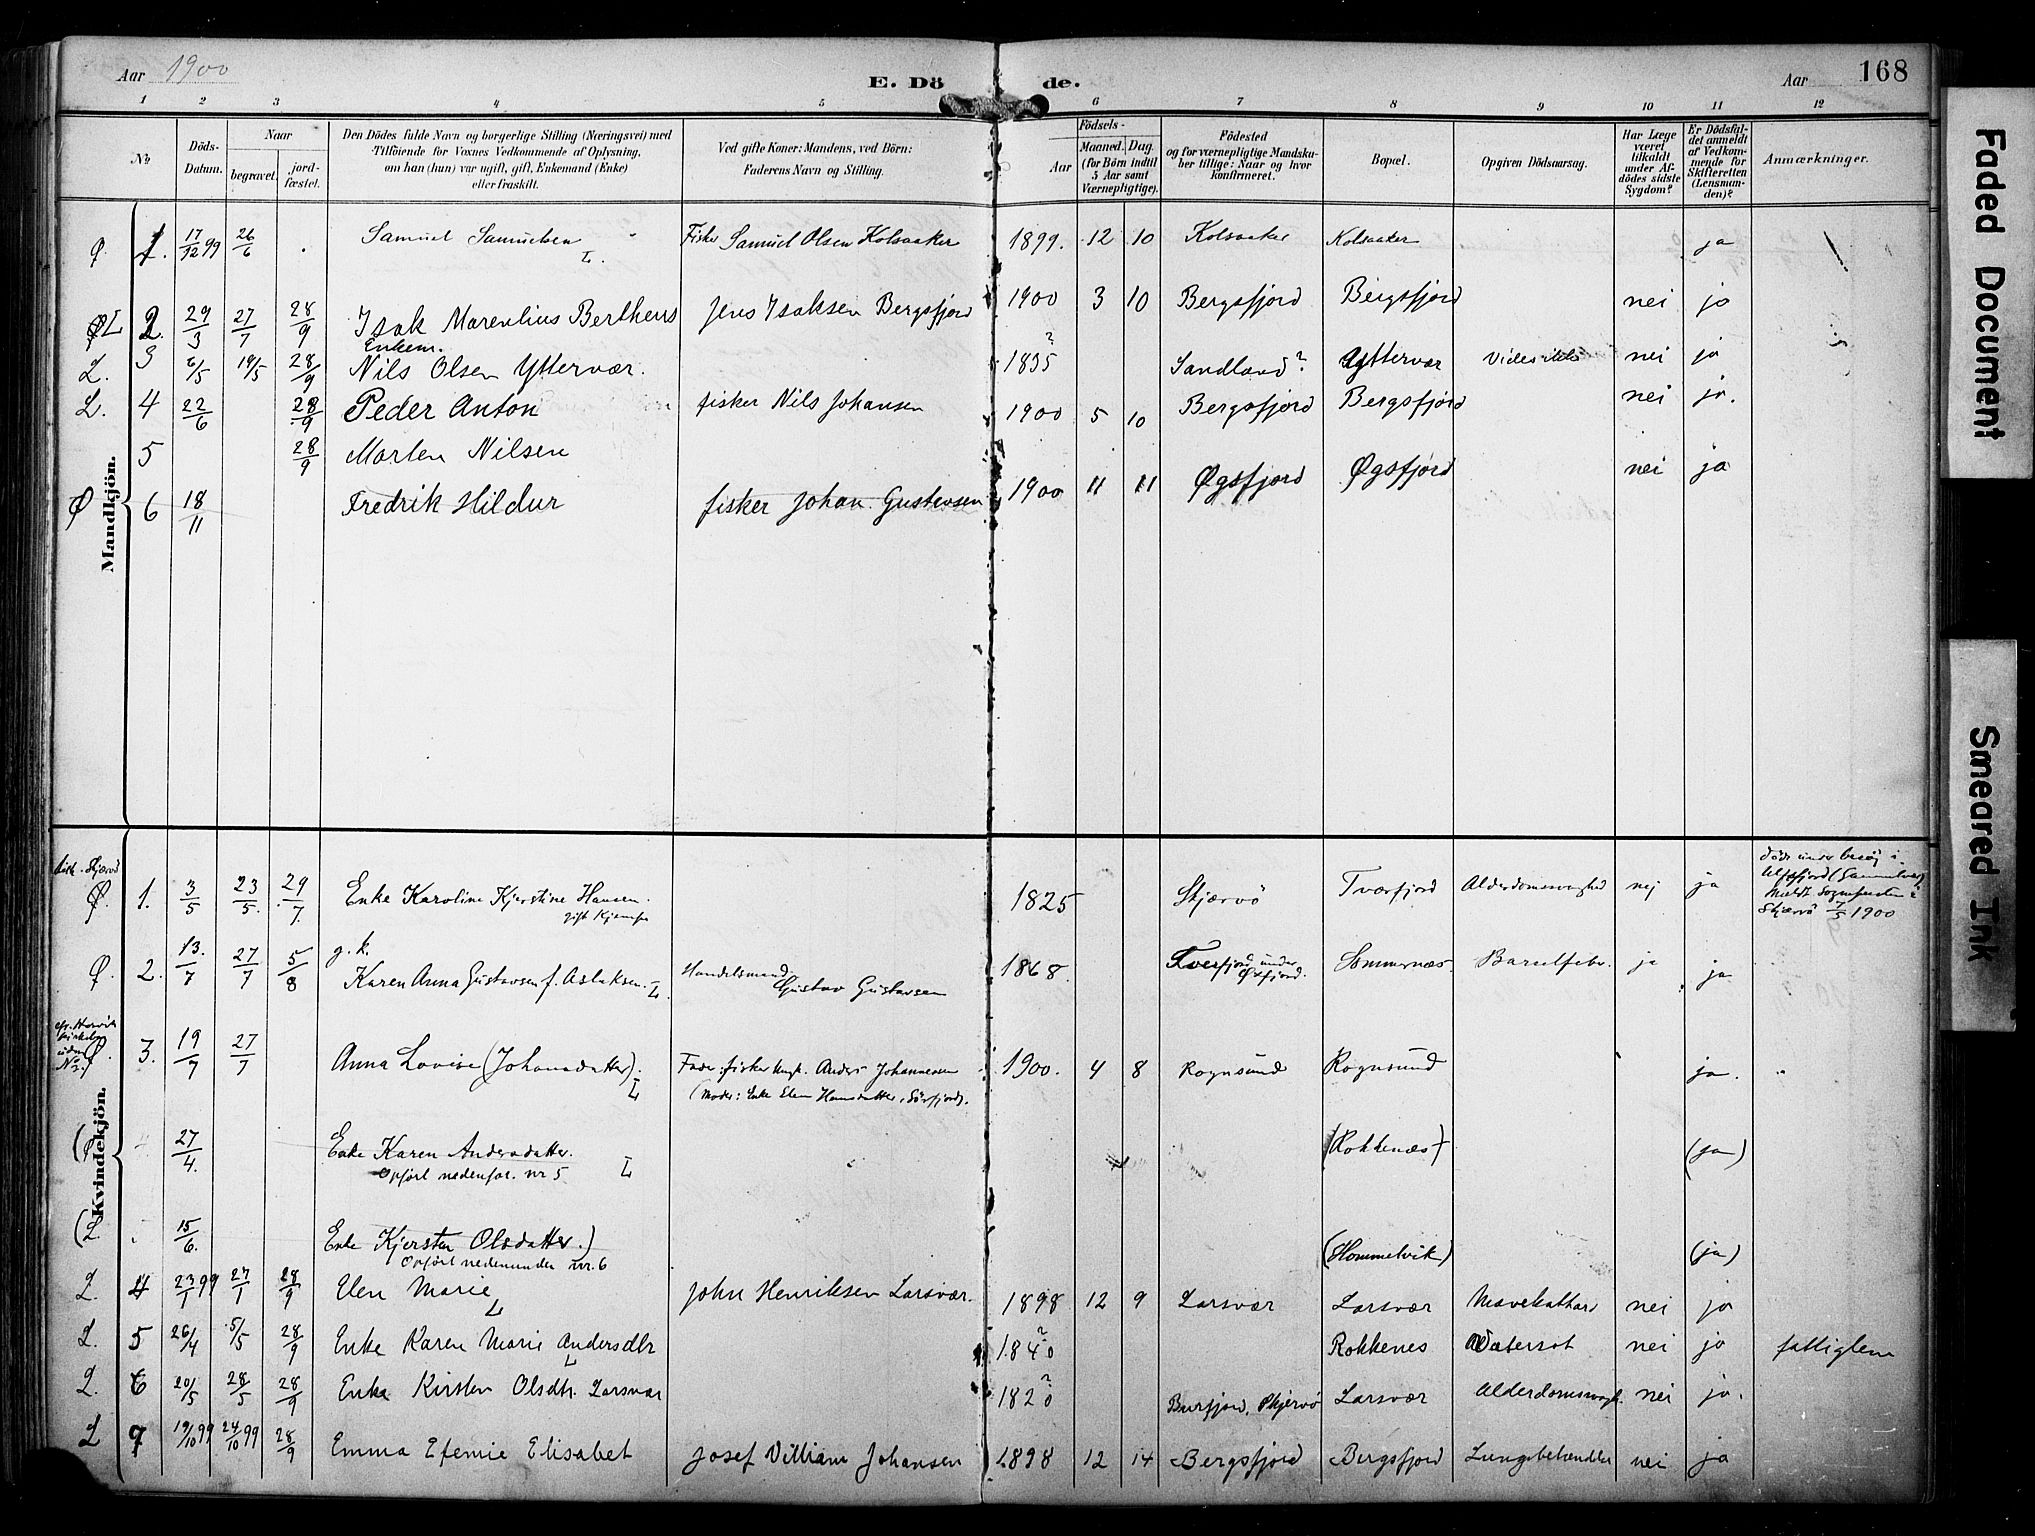 Aar 1900 E. Dö de. Aar 168
1 2 3 4 5 6 7 8 9 10 11 12
No.
Döds-Datum.
Naar
begravet.
jord-fæstet.
Den Dödes fulde Navn og borgerlige Stilling (Næringsvei) med
Tilföiende for Voxnes Vedkommende af Oplysning,
om han (hun) var ugift, gift, Enkemand (Enke)
eller fraskilt.
Ved gifte Koner: Mandens, ved Börn:
Faderens Navn og Stilling.
Födsels-
Aar
Maaned. Dag.
(for Börn indtil
5 Aar samt
Værnepligtige).
Födested
og for værnepligtige Mandska-
ber tillige: Naar og hvor
konfirmeret.
Bopæl.
Opgiven Dödsaarsag.
Har Læge
været
tilkaldt
under Af-
dödes sidste
Sygdom?
Er Dödsfal-
det anmeldt
af Vedkom-
mende for
Skifteretten
(Lensman-
den)?
Anmærkninger.
Mandkjön.
Ø. 1. 17/12 99 26/6 Samuel Samuelsen L. Fisker Samuel Olsen Kolsaaker 1899. 12 10 Kolsaaker Kolsaaker ja
ØL 2. 29/3 27/7 28/9 Isak Marenlius Berthens Jens Isaksen Bergsfjord 1900 3 10 Bergsfjord Bergsfjord nei ja
L. 3 6/5 19/5 28/9 Enkem. Nils Olsen Yttervær. 1835 ? Sandland? Yttervær nei ja
L. 4 22/6 28/9 Peder Anton fisker Nils Johansen 1900 5 10 Bergsfjord Bergsfjord nei ja.
5 28/9 Morten Nilsen
Ø 6 18/11 Fredrik Hildur fisker Johan Gustavsen 1900 11 11 Øgsfjord Øgsfjord nei ja
Kvindekjön.
Ø. 1. 3/5 23/5. 29/7. Enke Karoline Kjerstine Hansen. 1825 Skjærvö Tverfjord Alderdomssvaghed nej ja
döde under besøg i
Skjærvö 7/5 1900
Ø. 2. 13./7 27/7 5/8 g. k.
Karen Anna Gustavsen f. Aslaksen. L. Handelsmand Gustav Gustavsen 1868. Tverfjord under Øxfjord. Sommernæs Barselfeber. ja ja
Ø. 3. 19/7 27/7 Anna Lovise (Johansdatter). L Fader: fisker ungk. Anders Johannesen 1900. 4 8 Rognsund Rognsund ja.
(Moder: Enke Elen Hansdatter, Sörfjord).
(Ø 27/4. Enke Karen Andersdatter. (Rokkenæs) (ja)
Opfört nedenfor. nr 5 L
(L 15/6. Enke Kjersten Olsdatter.) (Hommelvik) (ja)
Opfört nedenunder nr. 6
L. 4 23/1 99 27/1 28/9 Elen Marie L John Henriksen Larsvær. 1898 12 9 Larsvær Larsvær Mavekathar nei ja
L. 5 26/4 5/5 28/9 Enke Karen Marie Andersdtr L 1840 ? Rokkenes Vatersot nei ja fattiglem
L. 6 20/5 28/5 28/9 Enke Kirsten Olsdtr. Larsvær 1820 ? Burfjord, Skjervö Larsvær Alderdomssvagh. nei ja.
L 7 19/10 99 24/10 99 28/9 Emma Efemie Elisabet Josef Villiam Johansen 1898 12 14 Bergsfjord Bergsfjord Lungebetændelse nei ja
Faded Document
Smeared Ink